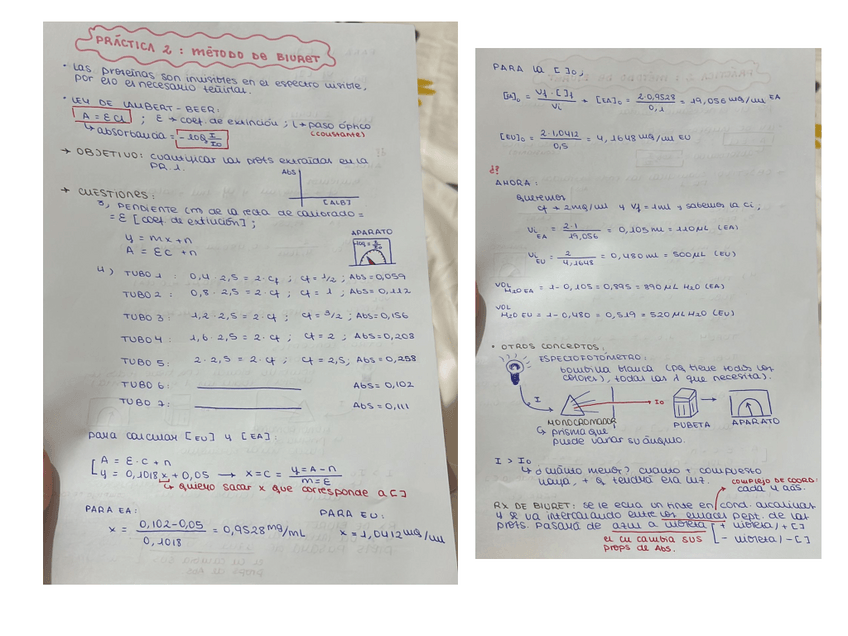 PRÁCTICA 2 : MÉTODO DE BIURET
• Las proteínas son invisibles en el espectro visible,
por ello es necesario teñirlas.
• LEY DE LAMBERT-BEER:
A = ε c l ; ε → coef. de extinción ; l → paso óptico
(constante)
↳ absorbancia = - log I/I0
→ OBJETIVO: cuantificar las prots extraídas en la
PR. 1.
Abs
[ALB]
→ CUESTIONES:
3) PENDIENTE (m) de la recta de calibrado =
= ε [coef. de extinción] ;
y = mx + n
A = εc + n
APARATO
4) TUBO 1 : 0,4 · 2,5 = 2 · cf ; cf = 1/2 ; Abs = 0,059
TUBO 2 : 0,8 · 2,5 = 2 · cf ; cf = 1 ; Abs = 0,112
TUBO 3 : 1,2 · 2,5 = 2 · cf ; cf = 3/2 ; Abs = 0,156
TUBO 4 : 1,6 · 2,5 = 2 · cf ; cf = 2 ; Abs = 0,208
TUBO 5 : 2 · 2,5 = 2 · cf ; cf = 2,5 ; Abs = 0,258
TUBO 6 : Abs = 0,102
TUBO 7 : Abs = 0,111
para calcular [EU] y [EA] :
A = ε · c + n
y = 0,1018x + 0,05 → x = c = y = A - n / m = ε
↳ quiero sacar x que corresponde a [ ]
PARA EA:
x = 0,102 - 0,05 / 0,1018 = 0,9528 mg/mL
PARA EU:
x = 1,0412 mg/ml
PARA la [ ]0,
[EA]0 = 2·0,9528 / 0,1 = 19,056 mg/ml EA
[EU]0 = 2·1,0412 / 0,5 = 4,1648 mg/ml EU
¿?
AHORA :
queremos
cf = 2mg/ml y Vf = 1ml y sabemos la ci ;
Vi EA = 2·1 / 19,056 = 0,105 ml = 110 μL (EA)
Vi EU = 2 / 4,1648 = 0,480 ml = 500 μL (EU)
VOL H2O EA = 1 - 0,105 = 0,895 = 890 μL H2O (EA)
VOL H2O EU = 1 - 0,480 = 0,519 = 520 μL H2O (EU)
• OTROS CONCEPTOS:
ESPECTOFOTÓMETRO:
bombilla blanca (pq tiene todos los
colores), todas las λ que necesita).
I
I0
MONOCROMADOR
CUBETA
APARATO
↳ prisma que
puede variar su ángulo.
I > I0
↳ ¿cuánto menor? cuanto + compuesto
haya, + se tendrá la luz.
COMPLEJO DE COORD:
cada 4 aas.
RX DE BIURET: se le echa un tinte en cond. alcalinas
y se va intercalando entre los enlaces pept. de las
prots. Pasará de azul a violeta
+ violeta / + [ ]
- violeta / - [ ]
el Cu cambia sus
props de Abs.